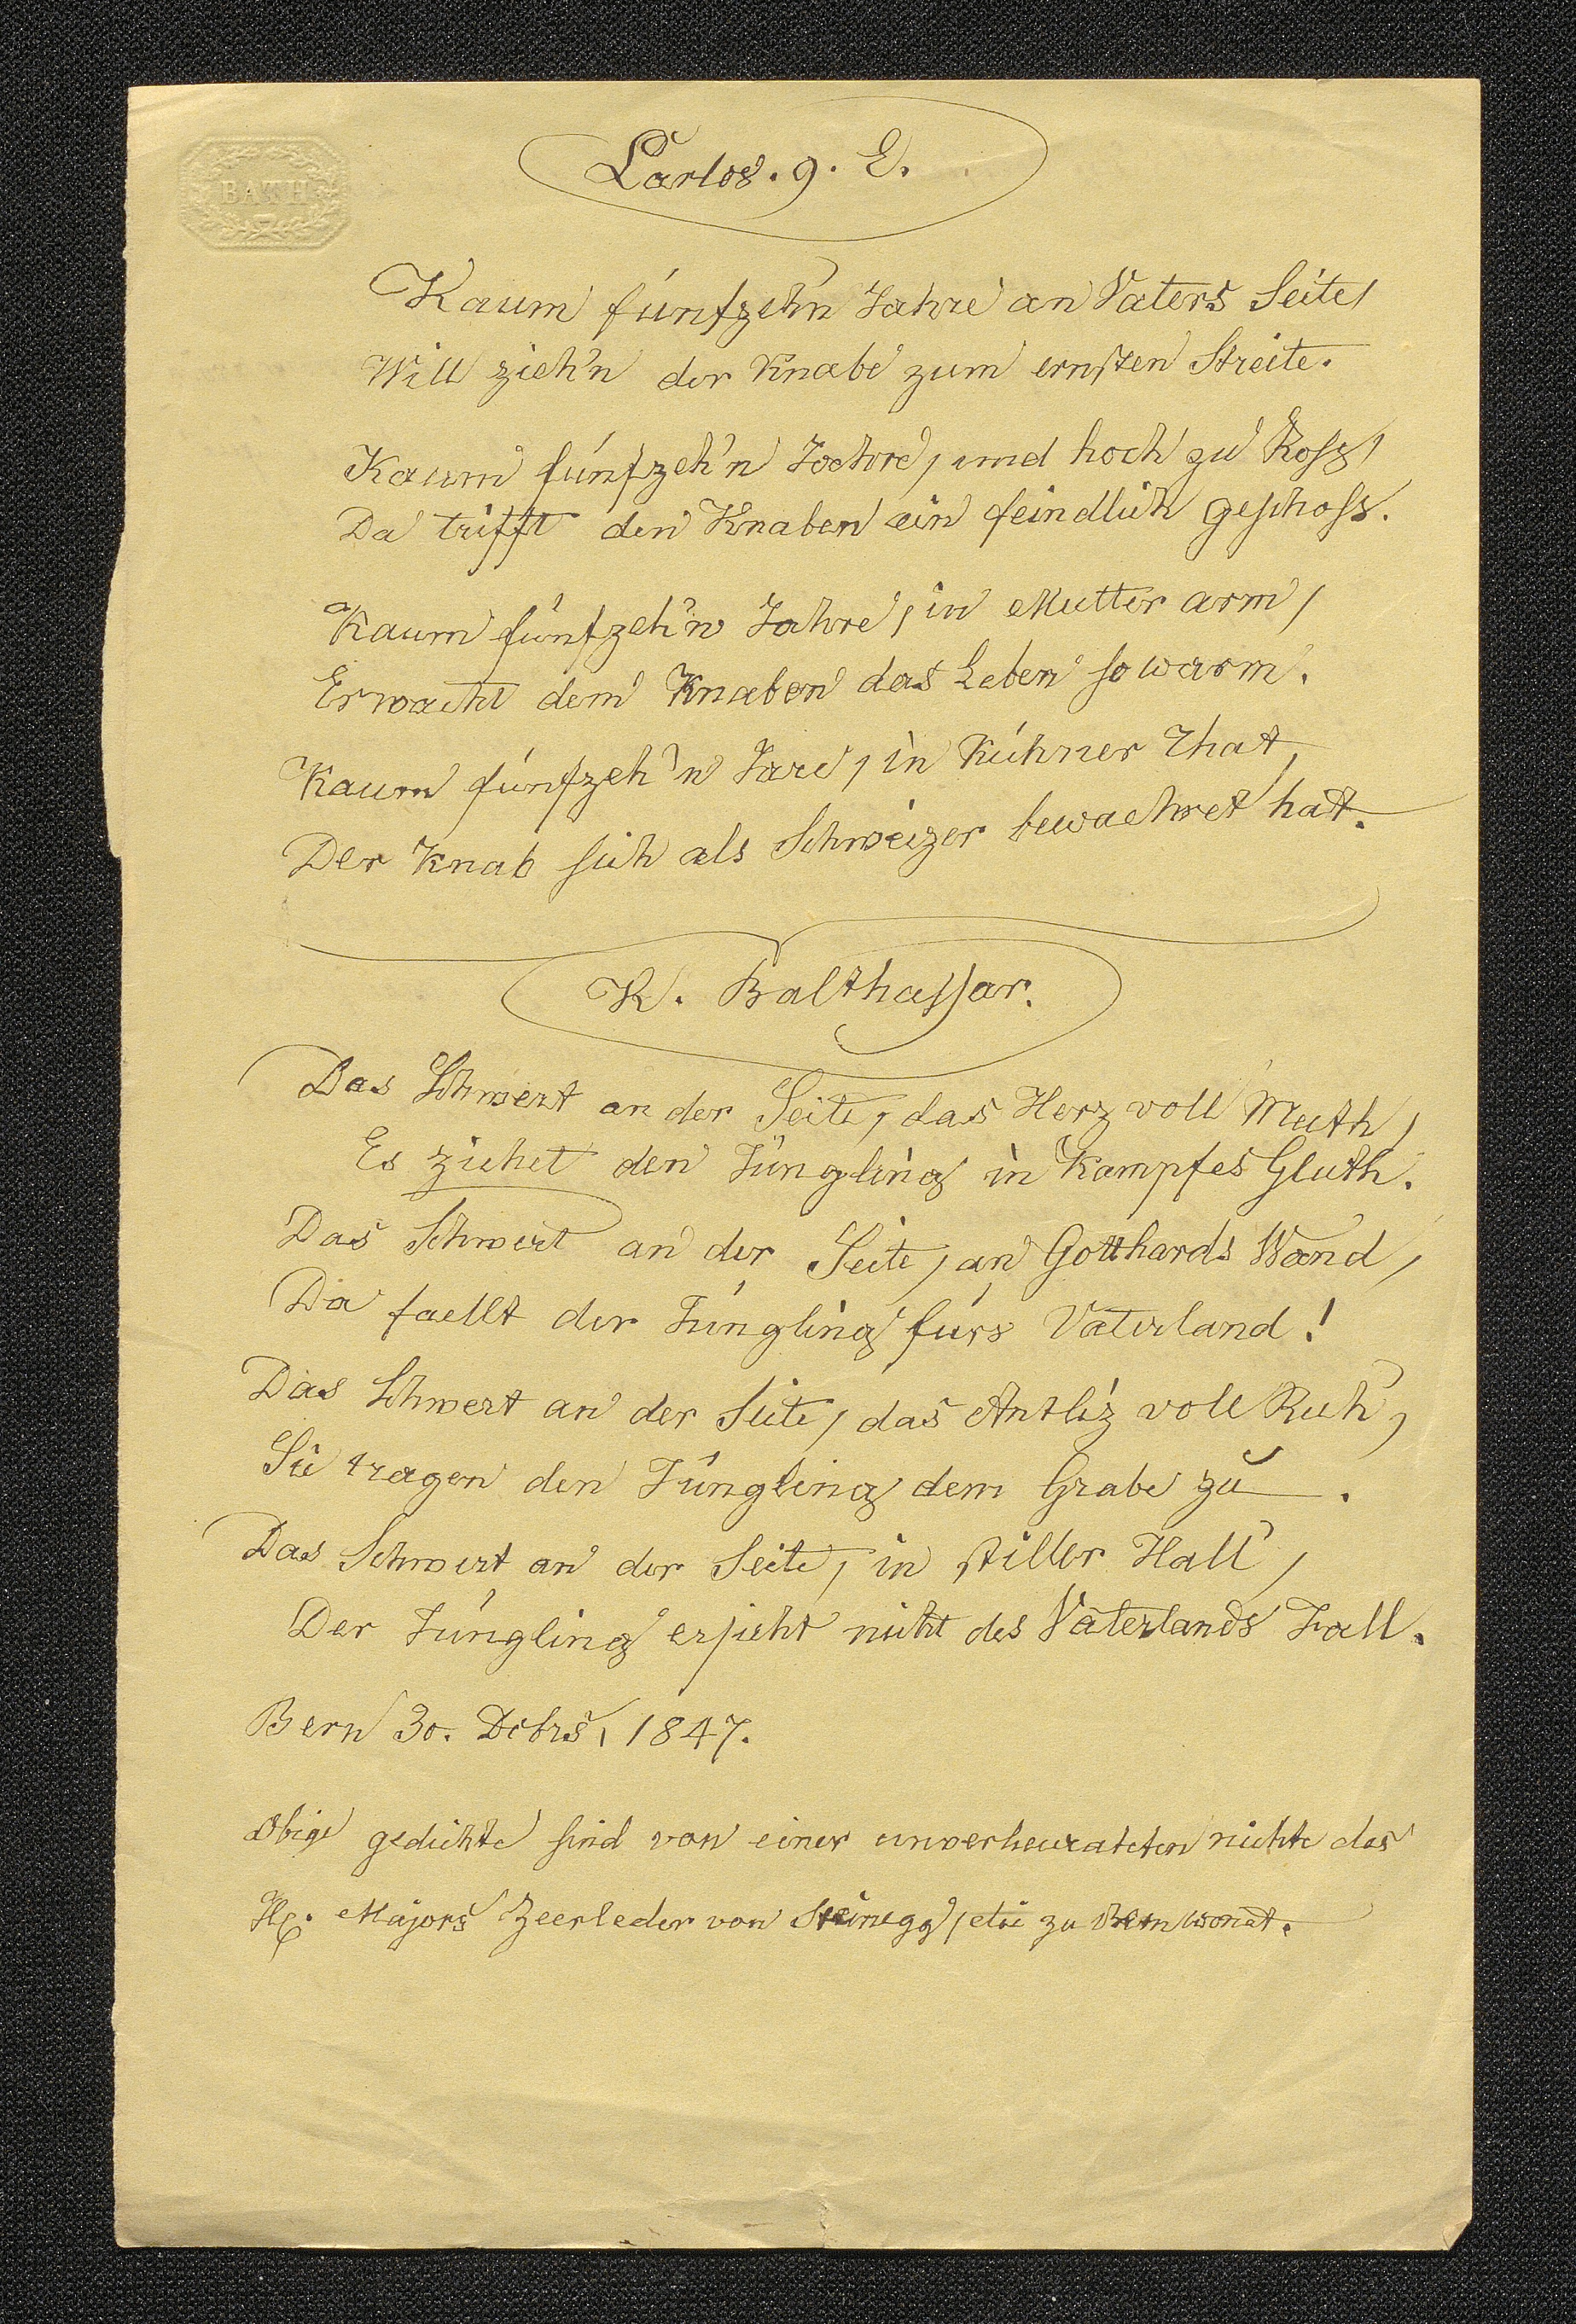 BATH
Carlos. g. E.
Kaum fünfzeh'n Jahre an Vaters Seite,
Will zieh'n der Knabe zum ernsten Streite.
Kaum fünfzeh'n Jaehre, und hoch zu Ross,
Da trifft den Knaben ein feindlich geschoss.
Kaum fünfzeh'n Jahre, in Mutter arm,
Erwacht dem Knaben das Leben so warm.
Kaum fünfzeh'n Jare, in Kühner That,
Der Knab sich als Schweizer bewaehret hat.
K. Balthassar.
Das Schwert an der Seite, das Herz voll Muth,
Es ziehet den Jüngling in Kampfes Gluth.
Das Schwert an der Seite, an Gotthards Wand,
Da faellt der Jüngling fürs Vaterland!
Das Schwert an der Seite, das Antliz voll Ruh,
Sie tragen den Jüngling dem Grabe zu.
Das Schwert an der Seite, in stiller Hall,
Der Jüngling ersieht nicht des Vaterlands Fall.
Bern 30. Dcbrs, 1847.
Obige gedichte sind von einer unverheurateten nichte des
H. Majors Zeerleder von Steinegg, die zu Bern wonet.